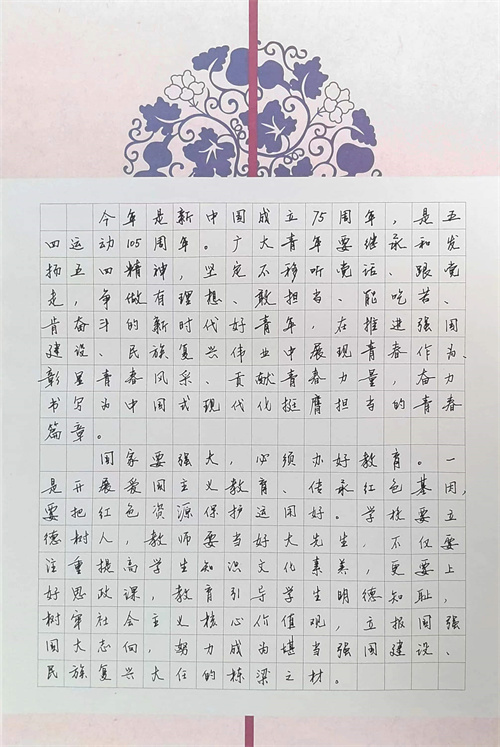 今年是新中国成立75周年，是五
四运动105周年。广大青年要继承和发
扬五四精神，坚定不移听党话、跟党
走，争做有理想、敢担当、能吃苦、
肯奋斗的新时代好青年，在推进强国
建设、民族复兴伟业中展现青春作为、
彰显青春风采、贡献青春力量，奋力
书写为中国式现代化挺膺担当的青春
篇章。
国家要强大，必须办好教育。一
是开展爱国主义教育、传承红色基因，
要把红色资源保护运用好。学校要立
德树人，教师要当好大先生，不仅要
注重提高学生知识文化素养，更要上
好思政课，教育引导学生明德知耻，
树牢社会主义核心价值观，立报国强
国大志向，努力成为堪当强国建设、
民族复兴大任的栋梁之材。